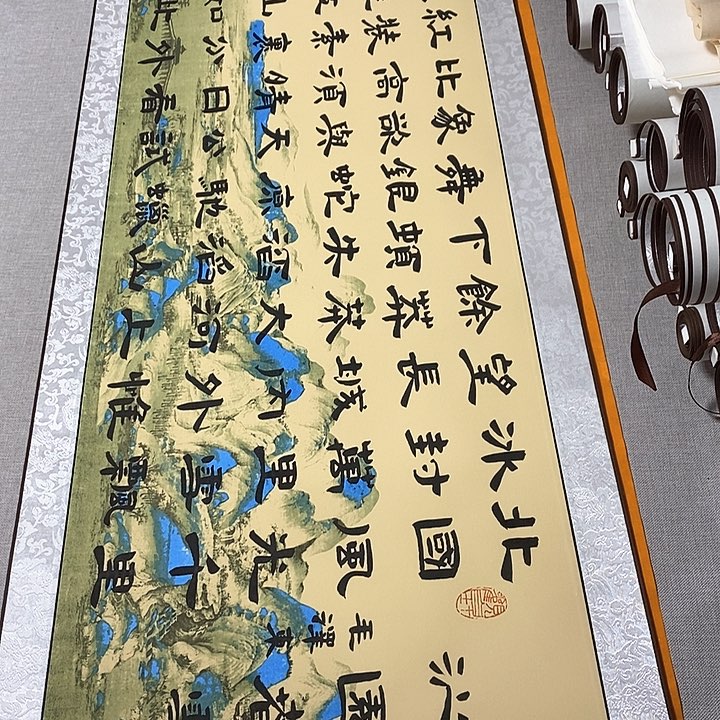 沁園春雪
毛澤東
北國風光千里
冰封萬里雪飄
望長城內外惟
餘莽莽大河上
下頓失滔滔山
舞銀蛇原馳蠟
象欲與天公試
比高須晴日看
紅裝素裹分外
山如此